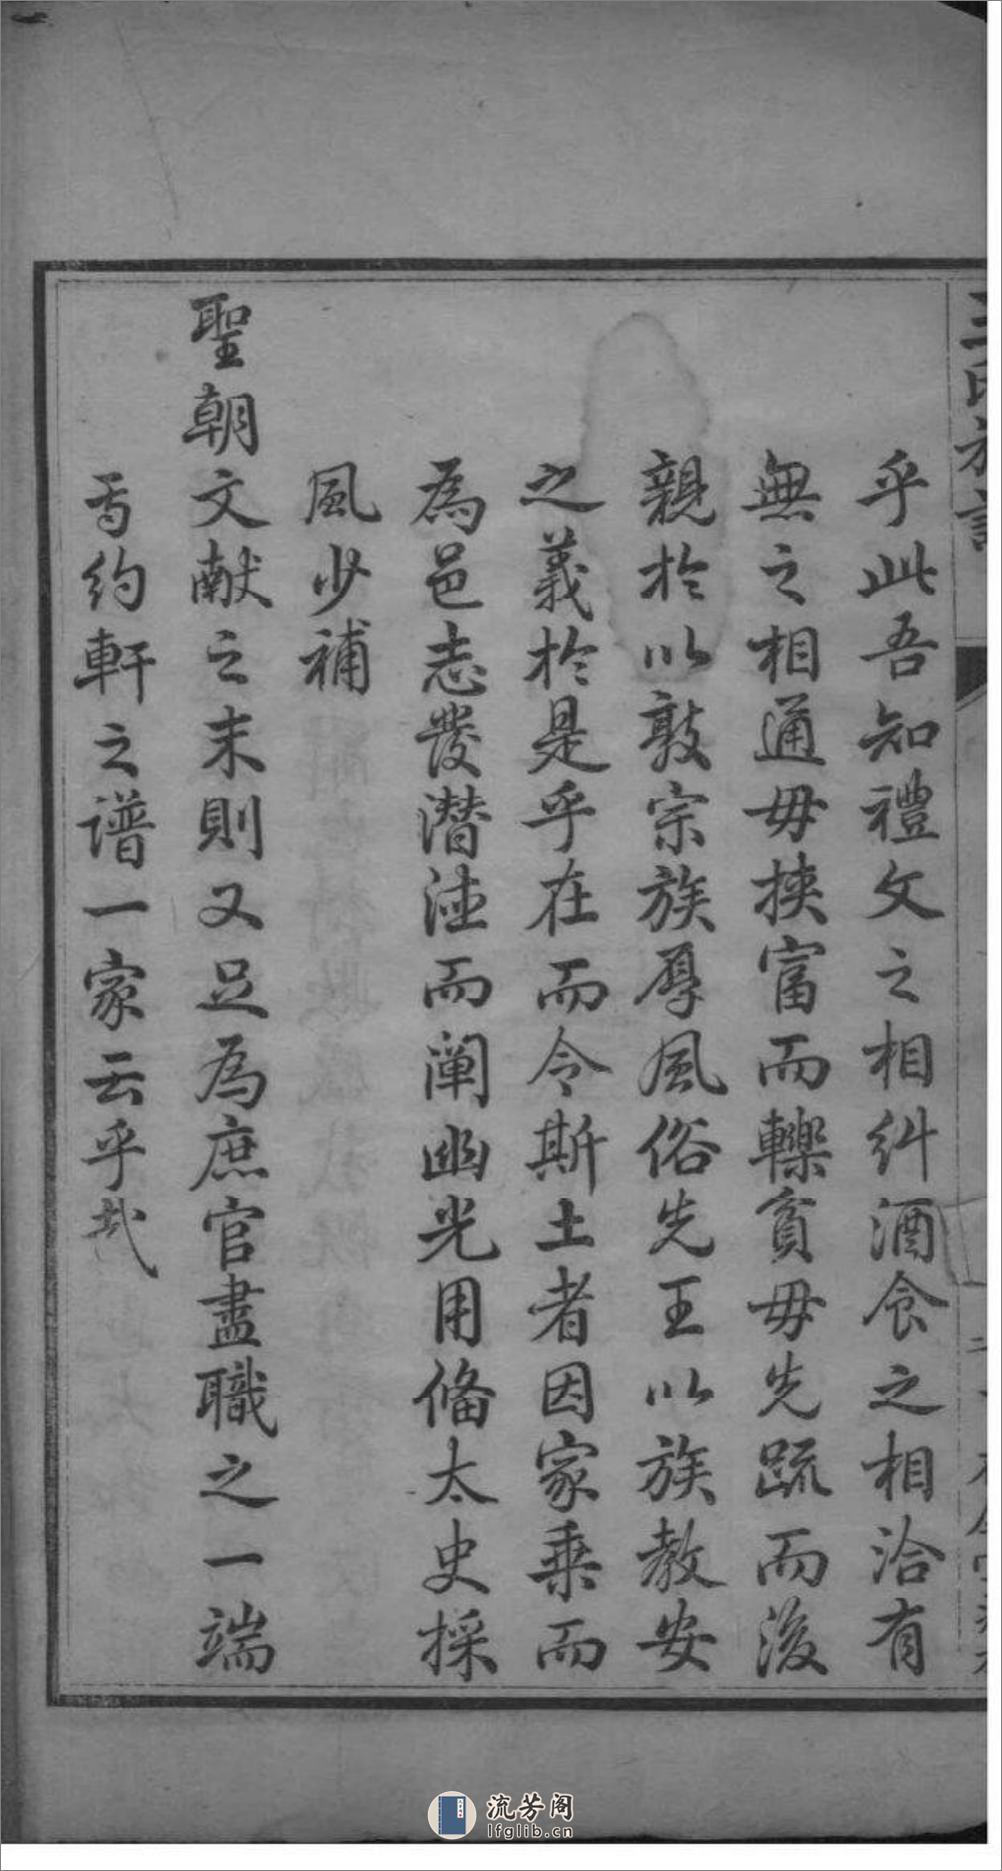 王氏族譜
乎此吾知禮文之相糾酒食之相洽有
無之相通毋挾富而轢貧毋先疏而後
親於以敦宗族厚風俗先王以族教安
之義於是乎在而令斯土者因家乘而
為邑志發潛德而闡幽光用備太史採
風少補
聖朝文献之末則又足為庶官盡職之一端
焉約軒之譜一家云乎哉
流芳阁
lfglib.cn